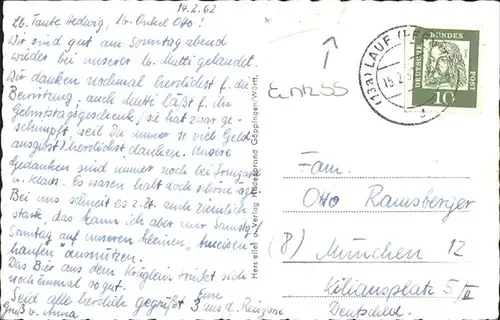 14.2.62
Lb. Tante Hedwig, lb. Onkel Otto!
Wir sind gut am Sonntag abend
wieder bei unserer lb. Mutti gelandet.
Wir danken nochmal herzlichst f. die
Bewirtung; auch Mutti läßt f. ihr
Geburtstagsgeschenk, sie hat zwar ge-
schimpft, weil Du immer so viel Geld
ausgibst) herzlichst danken. Unsere
Gedanken sind immer noch bei
u. Klaus. Es waren halt doch schöne Tage.
Bei uns schneit es z.Zt. auch ziemlich
stark, das kann ich aber nur Samstag/
Sonntag auf unseren kleinen "Ameisen-
haufen" ausnützen.
Das Bier aus dem Krüglein trinkt sich
noch einmal so gut.
Seid alle herzlichst gegrüßt
Eure
3 aus d.
Gruß v. Anna
Hersteller u. Verlag Hildebrand Göppingen/Württ.
(13a) LAUF
15.2.
DEUTSCHE BUNDESPOST
10
Fam.
Otto Ramsberger
(8) München 12
Kiliansplatz 5/II
Deutschld.